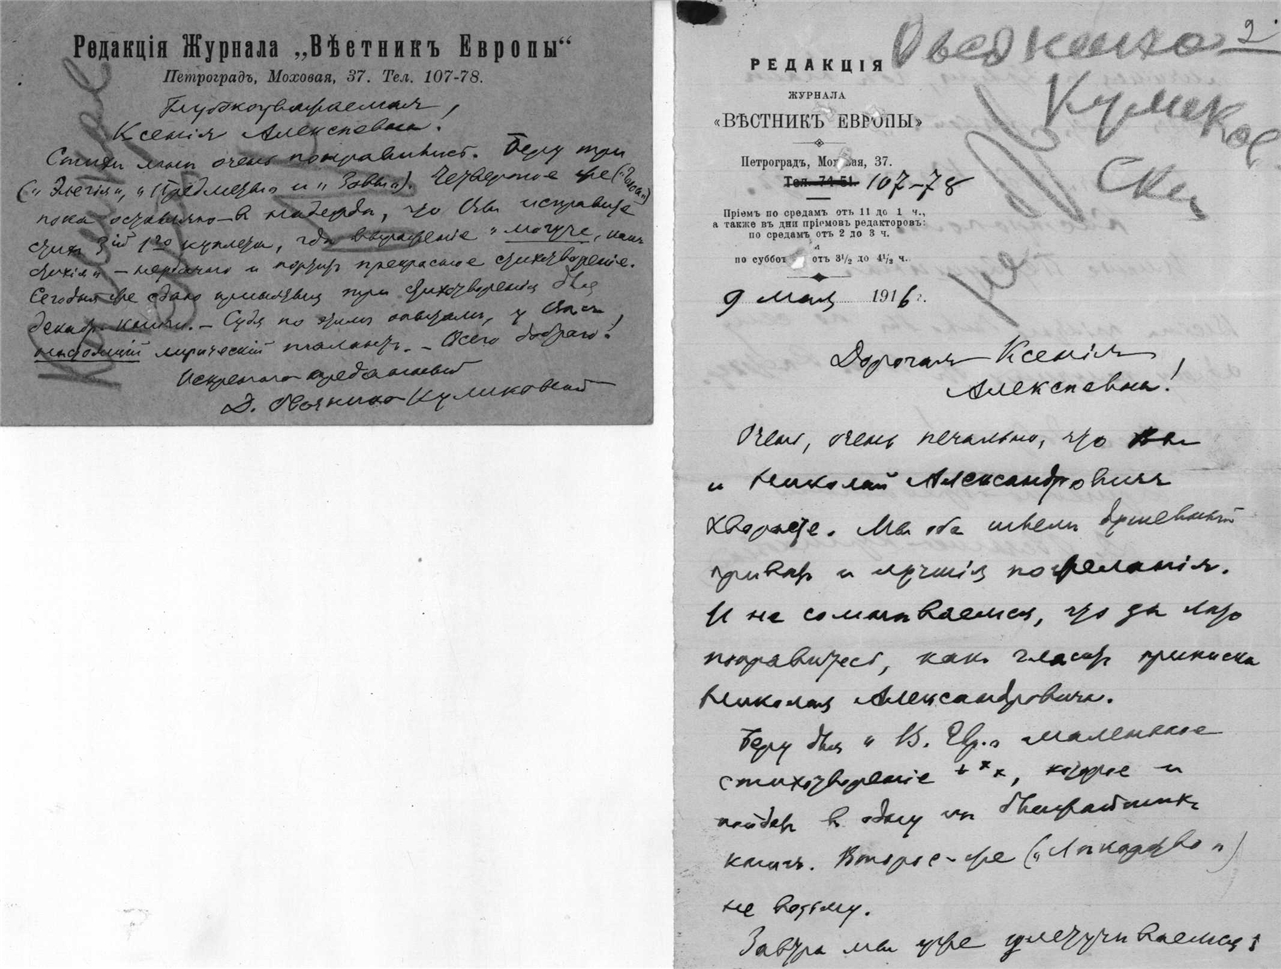 Редакція Журнала „Вѣстникъ Европы“
Петроградъ, Моховая, 37. Тел. 107-78.
Глубокоуважаемая
Ксенія Алексѣевна!
Стихи мнѣ очень понравились. Беру три
(„Элегія“, и „Зовы“). Четвертое же
пока оставляю въ надеждѣ, что Вы исправите
стихъ 3ій 1го куплета, гдѣ выраженіе „могуче,
– неудачно и портитъ прекрасное стихотвореніе.
Сегодня же сдаю три стихотворенія для
декабр. книги. – Судя по этимъ у Васъ
лирическій талантъ. – Всего добраго!
Искренно преданный
Д. Овсянико-Куликовскій
Овсянико 2
Куликовскій
РЕДАКЦІЯ
ЖУРНАЛА
«ВѢСТНИКЪ ЕВРОПЫ»
Петроградъ, Моховая, 37.
Тел. 74-51. 107-78
Пріемъ по средамъ отъ 11 до 1 ч.,
а также въ дни пріемовъ редакторовъ:
по средамъ отъ 2 до 3 ч.
по суббот отъ 3½ до 4½ ч.
9 мая 1916 г.
Дорогая Ксенія
Алексѣевна!
Очень, очень печально, что Вы
и Николай Александровичъ
хвораете. Мы оба шлемъ душевный
привѣтъ и лучшія пожеланія.
И не сомнѣваемся, что за лѣто
поправитесь, какъ гласитъ приписка
Николая Александровича.
Беру для „В. Евр.“ маленькое
стихотвореніе ***, которое и
пойдетъ въ одну изъ ближайшихъ
книгъ. Второе-же
не возьму.
Завтра мы уже улетучиваемся: